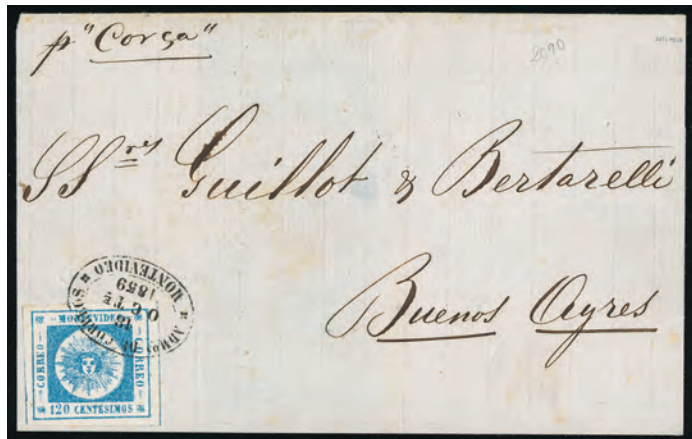 p "Corsa"
2090
SSres Guillot & Bertarelli
Buenos Ayres
ADMON DE CORREOS
MONTEVIDEO
18
OCT.
1859
MONTEVIDEO
CORREO
CORREO
120 CENTESIMOS